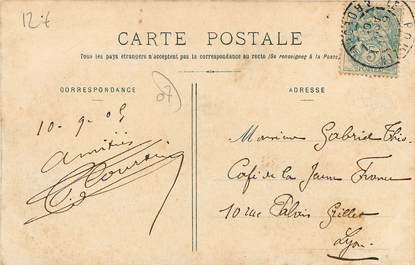 12 €
CARTE POSTALE
Tous les pays étrangers n'acceptent pas la correspondance au recto (Se renseigner à la Poste)
CORRESPONDANCE
ADRESSE
07
10-9-05
amitiés
Monsieur Gabriel
Café de la Jeune France
10 rue Palais Grillet
Lyon